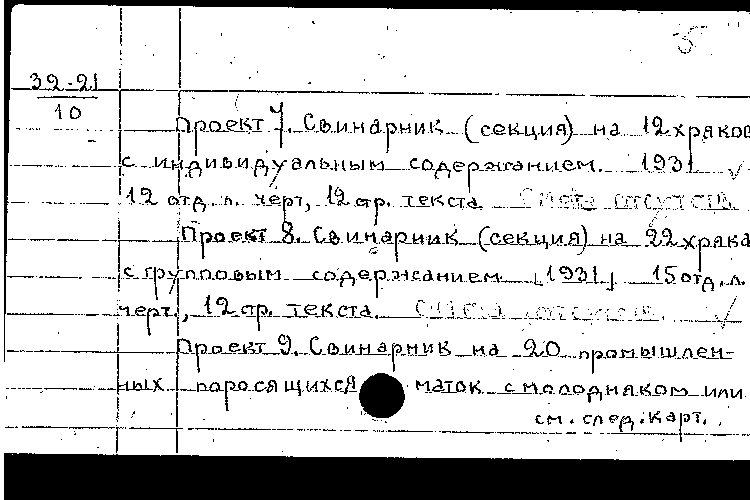 5
32-21
10
Проект 7. Свинарник (секция) на 12 хряков
с индивидуальным содержанием. 1931
12 отд. л. черт, 12 стр. текста. Смета отсутств.
Проект 8. Свинарник (секция) на 22 хряка
с групповым содержанием [1931] 15 отд. л.
черт., 12 стр. текста. Смета отсутств.
Проект 9. Свинарник на 20 промышлен-
ных поросящихся маток с молодняком или
см. след. карт.